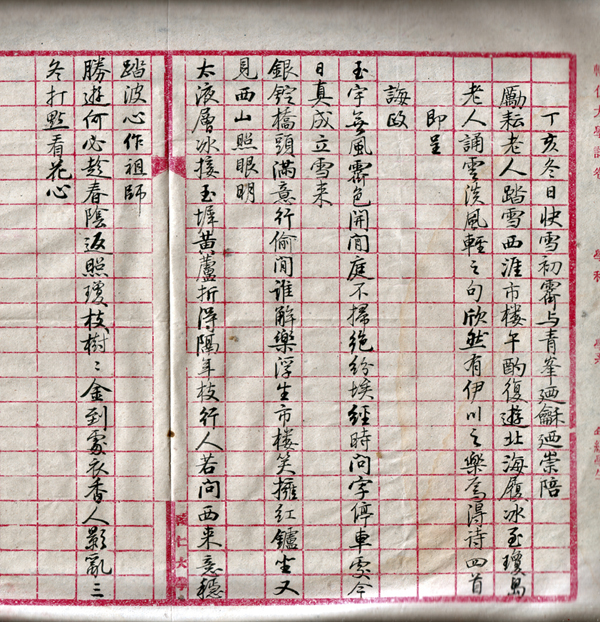 輔仁大學試卷 學科 學系
丁亥冬日快雪初霽与青峯迺龢迺崇陪
勵耘老人踏雪西涯市楼午酌復遊北海履冰至瓊島
老人誦雲淡風輕之句欣然有伊川之樂焉得詩四首
即呈
誨政
玉宇無風霽色開閒庭不掃絶紛埃經時問字停車處今
日真成立雪来
銀錠橋頭滿意行偷閒誰解樂浮生市楼笑擁紅鑪坐又
見西山照眼明
太液層冰接玉墀黄蘆折得隔年枝行人若问西来意穏
輔仁大學
踏波心作祖師
勝遊何必趁春陰返照瓊枝樹〻金到處衣香人影亂三
冬打點看花心